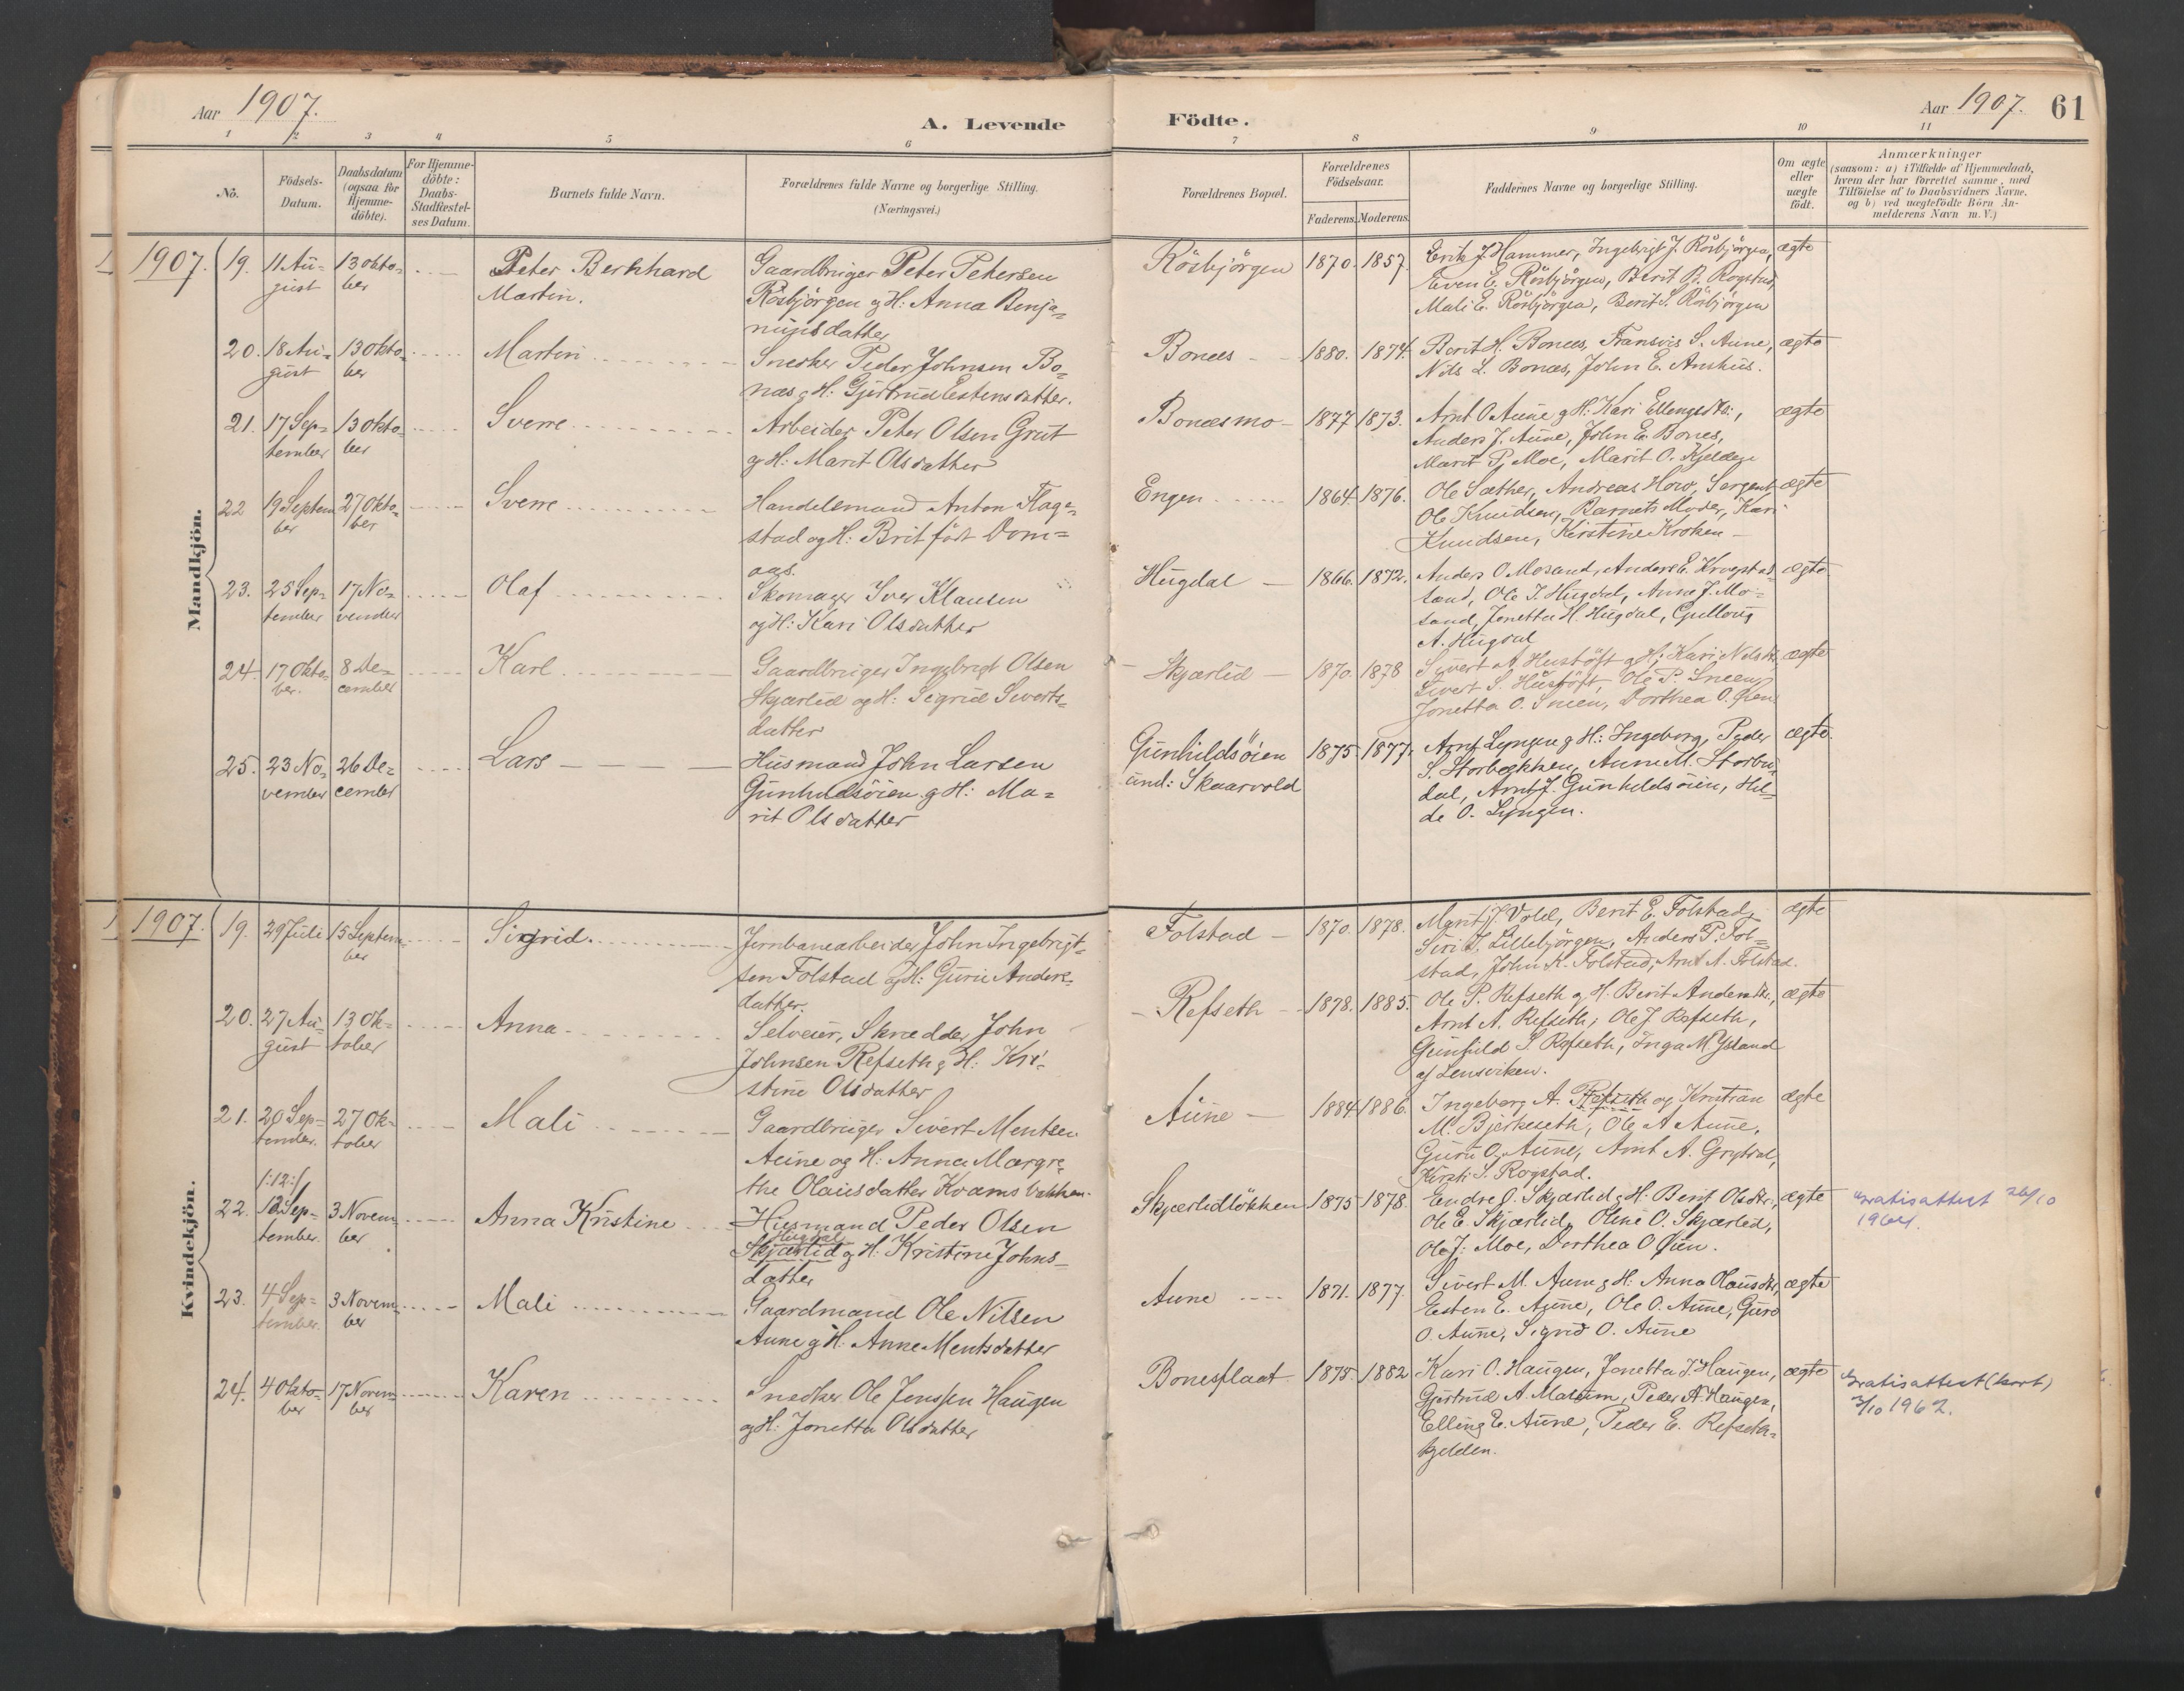 Aar 1907.
A. Levende Födte.
Aar 1907. 61
1 2 3 4 5 6 7 8 9 10 11
No.
Födsels-
Datum.
Daabsdatum
(ogsaa for
Hjemme-
döbte).
For Hjemme-
döbte:
Daabs-
Stadfæstel-
ses Datum.
Barnets fulde Navn.
Forældrenes fulde Navne og borgerlige Stilling.
(Næringsvei.)
Forældrenes Bopæl.
Forældrenes
Födselsaar.
Faderens. Moderens.
Faddernes Navne og borgerlige Stilling.
Om ægte
eller
uægte
födt.
Anmærkninger
(saasom: a) i Tilfælde af Hjemmedaab,
hvem der har forrettet samme, med
Tilföielse af to Daabsvidners Navne,
og b) ved uægtefödte Börn An-
melderens Navn m. V.)
Mandkjön.
1907. 19. 11 Au-
gust
13 okto-
ber
Peter Bernhard
Martin.
Gaardbruger Peter Petersen
Rösbjörgen g H: Anna Benja-
minsdatter
Rösbjörgen 1870. 1857.
Erik J. Hammer, Ingebrigt J. Rösbjörgen,
Even E. Rösbjörgen, Berit B. Rogstad,
Mali E. Rösbjörgen, Berit S. Rösbjörgen
ægte
20. 18 Au-
gust
13 Okto-
ber
Martin
Snedker Peder Johnsen Bo-
næs g H: Gjertrud Estensdatter.
Bonæs 1880. 1874.
Berit H. Bonæs, Fransvis S. Aune,
Nils L. Bonæs, John E. Anshus.
ægte
21. 17 Sep-
tember
13 Okto-
ber
Sverre
Arbeider Peter Olsen Grut
og H: Marit Olsdatter
Bonæsmo 1877 1873.
Arnt O Aune g H: Kari Ellengsdtr.,
Anders J. Aune, John E. Bones,
Marit P. Moe, Marit O. Kjelden
ægte
22 19 Septem
ber
27 Okto-
ber
Sverre
Handelsmand Anton Flage-
stad og H: Brit født Dom-
aas.
Engen 1864. 1876.
Ole Sæther, Andreas How, Sergent
Ole Knudsen, Barnets Moder, Kari
Knudsen, Kirstine Kroken
ægte
23. 25 Sep-
tember
17 No-
vember
Olaf
Skomager Iver Klausen
og H: Kari Olsdatter
Hugdal 1866. 1872.
Anders O Mosand, Anders E.
sand, Ole I. Hugdal, Anne J. Mo-
sand, Jonetta H. Hugdal, Gullaug
A. Hugdal
ægte
24. 17 Okto-
ber.
8 De-
cember
Karl
Gaardbruger Ingebrigt Olsen
Skjærlid og H: Sigrid Siverts-
datter
Skjærlid 1870. 1878
Sivert A. Hustöft g H: Kari Nilsdtr.
Sivert S. Hustöft, Ole P. Sneen,
Jonetta O. Sneen, Dorthea O. Øien
ægte
25. 23 No-
vember
26 De-
cember
Lars
Husmand John Larsen
Gunhildsöien g H: Ma-
rit Olsdatter
Gunhildsöien
und: Skaarvold
1875 1877.
Arnt Lyngen g H: Ingeborg, Peder
S. Storbækken, Anne M. Storbu-
dal, Arnt J. Gunhildsöien, Hil-
de O. Lyngen.
ægte.
Kvindekjön.
1907. 19. 29 Juli 15 Septem-
ber
Sigrid.
Jernbanearbeider John Ingebrigt-
sen Folstad og H: Guri Anders-
datter.
Folstad 1870. 1878.
Marit J. Vold, Berit E. Folstad,
Siri I. Lillebjörgen, Anders P. Fol-
stad, John K. Folstad, Arnt A. Folstad.
ægte
20. 27 Au-
gust
13 Ok-
tober
Anna
Selveier, Skrædder John
Johnsen Refseth g H: Kri-
stine Olsdatter
Refseth 1878. 1885.
Ole P. Refseth g H: Berit Andersdtr.,
Arnt A. Refseth, Ole J. Refseth,
Gunhild S. Refseth, Inga M. Ysland
af Lensviken.
ægte
21. 20 Sep-
tember.
27 Ok-
tober
Mali
Gaardbruger Sivert Mentsen
Aune og H: Anna Margre-
the Olausdatter Kvamsbakken.
Aune 1884 1886.
Ingeborg A. Refseth og Kristian
M. Bjerkeseth, Ole A Aune,
Guru O. Aune, Arnt A. Grytdal,
Kirsti S. Rogstad.
ægte
/:12:/
22. 12 Sep-
tember.
3 Novem-
ber
Anna Kristine
Husmand Peder Olsen
Hugdal
Skjærlid g H: Kristine Johns-
datter
Skjærlidlökken 1875 1878.
Endre O. Skjærlid g H: Berit Olsdtr.,
Ole E. Skjærlid, Oline O. Skjærlid,
Ole J. Moe, Dorthea O Øien.
ægte
Gratisattest 26/10
1964.
23. 4 Sep-
tember.
3 Novem-
ber
Mali
Gaardmand Ole Nilsen
Aune g H: Anne Mentsdatter
Aune 1871. 1877.
Sivert M. Aune g H: Anna Olausdtr,
Esten E. Aune, Ole O. Aune, Guro
O. Aune, Sigrid O. Aune
ægte
24. 4 Okto-
ber
17 Novem-
ber
Karen
Snedker Ole Jenssen Haugen
og H: Jonetta Olsdatter
Bonesplaat 1875. 1882
Kari O. Haugen, Jonetta I. Haugen,
Gjertrud A. Malum, Peder A. Haugen,
Elling E. Aune, Peder E. Refseth-
kjelden.
ægte
Gratisattest (kort)
3/10 1962.